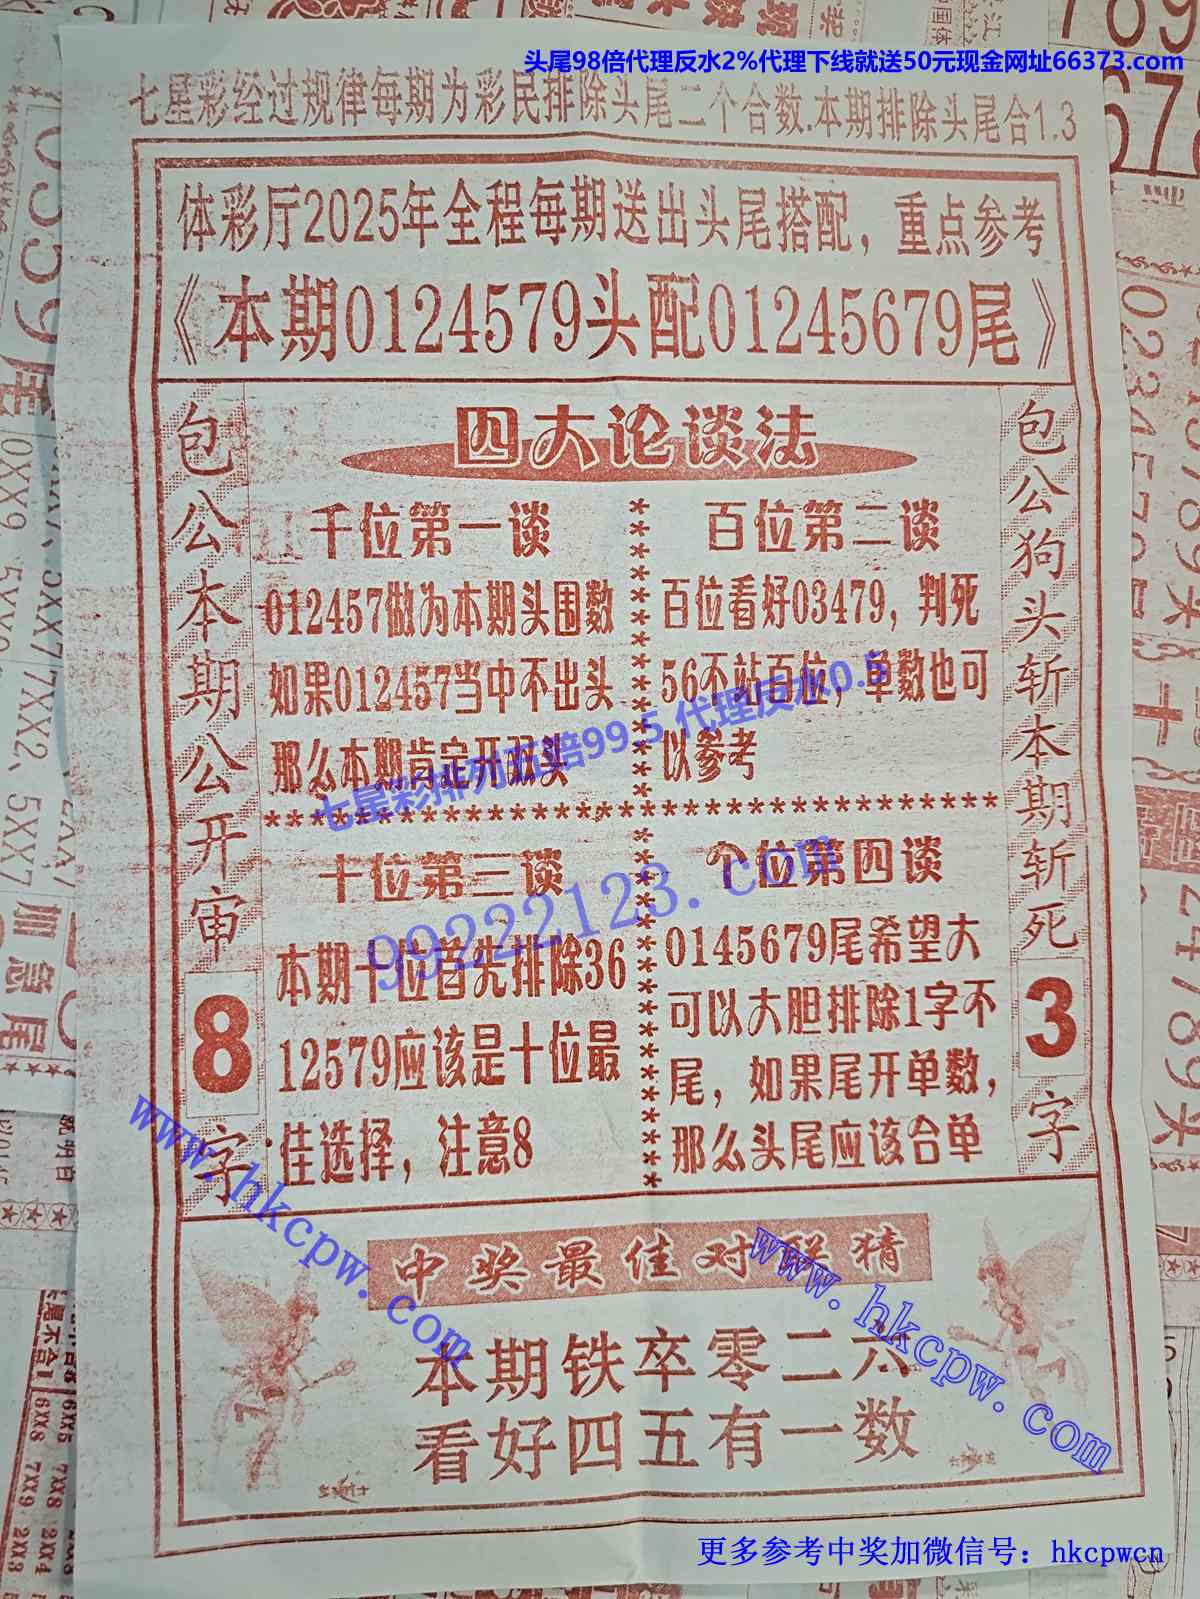 头尾98倍代理反水2%代理下线就送50元现金网址66373.com
七星彩经过规律每期为彩民排除头尾二个合数.本期排除头尾合1.3
体彩厅2025年全程每期送出头尾搭配，重点参考
《本期0124579头配01245679尾》
包公本期公开审8字
四大论谈法
千位第一谈
012457做为本期头围数
如果012457当中不出头
那么本期肯定开双头
百位第二谈
百位看好03479，判死
56不站百位，单数也可
以参考
七星彩排列五赔99.5 代理反水0.5
****************************************
十位第三谈
本期十位首先排除36
12579应该是十位最
佳选择，注意8
个位第四谈
0145679尾希望大
可以大胆排除1字不
尾，如果尾开单数，
那么头尾应该合单
99222123.com
包公狗头斩本期斩死3字
www.hkcpw.com
中奖最佳对联猜
本期铁卒零二六
看好四五有一数
www.hkcpw.com
更多参考中奖加微信号：hkcpwcn